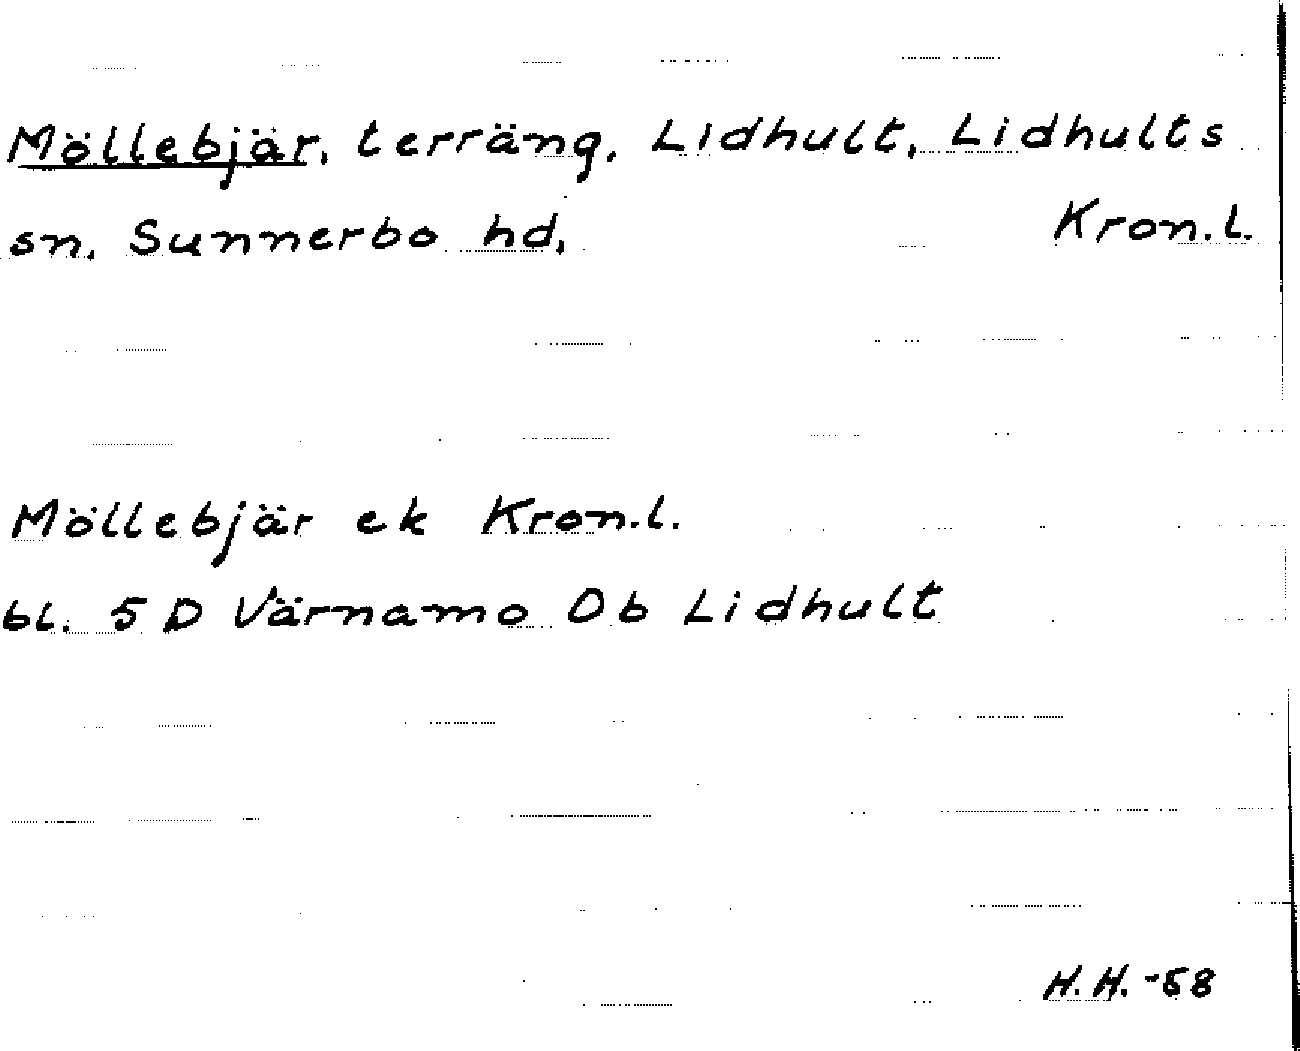 Möllebjär, terräng, Lidhult, Lidhults
sn, Sunnerbo hd, Kron.l.
Möllebjär ek Kron.l.
bl. 5 D Värnamo Ob Lidhult
H.H.-58